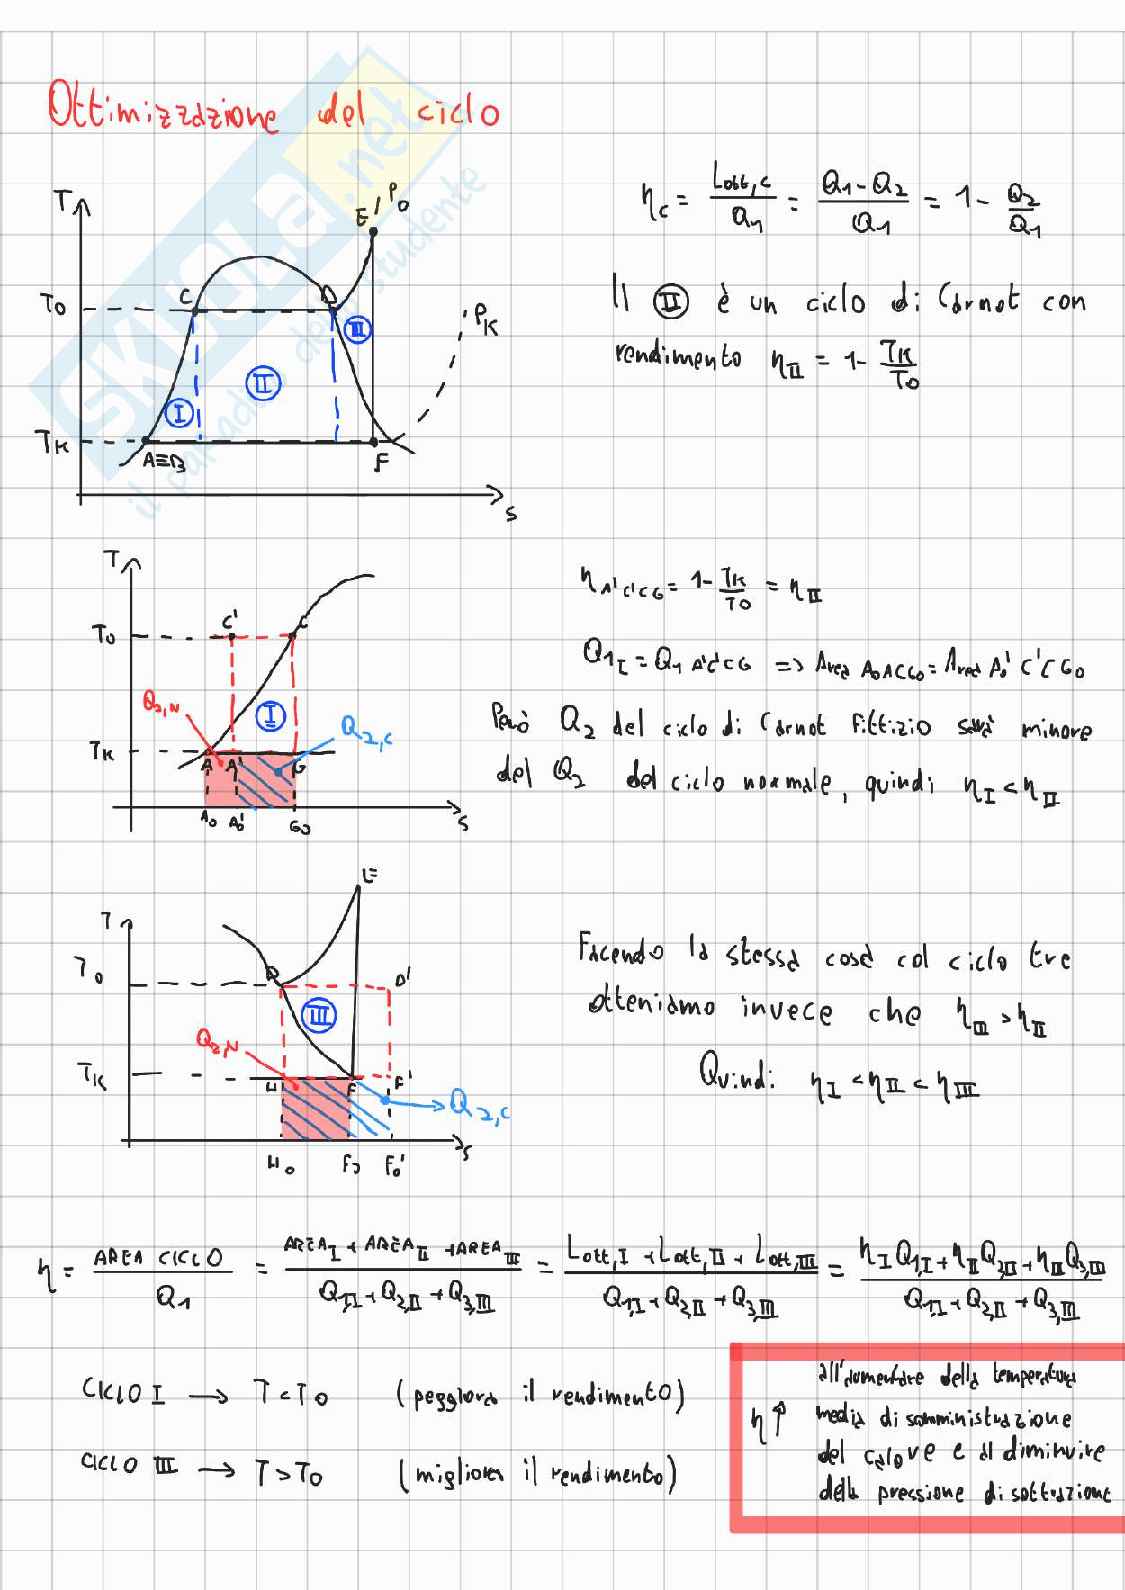 Ottimizzazione del ciclo
SKUOLA.net
il paradiso dello studente
T
E
P0
C
D
T0
PK
III
II
I
TK
A≡B
F
s
ηc = Lott,c / Q1 = Q1-Q2 / Q1 = 1 - Q2/Q1
Il II è un ciclo di Carnot con
rendimento ηII = 1- TK/T0
T
C'
C
T0
Q2,N
I
Q2,c
TK
A A' G
A0 A0' G0
s
ηA'C'CG = 1- TK/T0 = ηII
Q1I = Q1 A'C'CG => Area A0ACG0 = Area A0'C'CG0
Però Q2 del ciclo di Carnot fittizio sarà minore
del Q2 del ciclo normale, quindi ηI < ηII
E
T
D
D'
T0
III
Q2,N
TK
H F F'
Q2,c
H0 F0 F0'
s
Facendo la stessa cosa col ciclo tre
otteniamo invece che ηIII > ηII
Quindi ηI < ηII < ηIII
η = AREA CICLO / Q1 = AREAI + AREAII + AREAIII / Q1,I + Q2,II + Q3,III = Lott,I + Lott,II + Lott,III / Q1,I + Q2,II + Q3,III = ηI Q1,I + ηII Q2,II + ηIII Q3,III / Q1,I + Q2,II + Q3,III
CICLO I → T < T0 (peggiora il rendimento)
CICLO III → T > T0 (migliora il rendimento)
η↑ all'aumentare della temperatura
media di somministrazione
del calore e al diminuire
della pressione di sottrazione